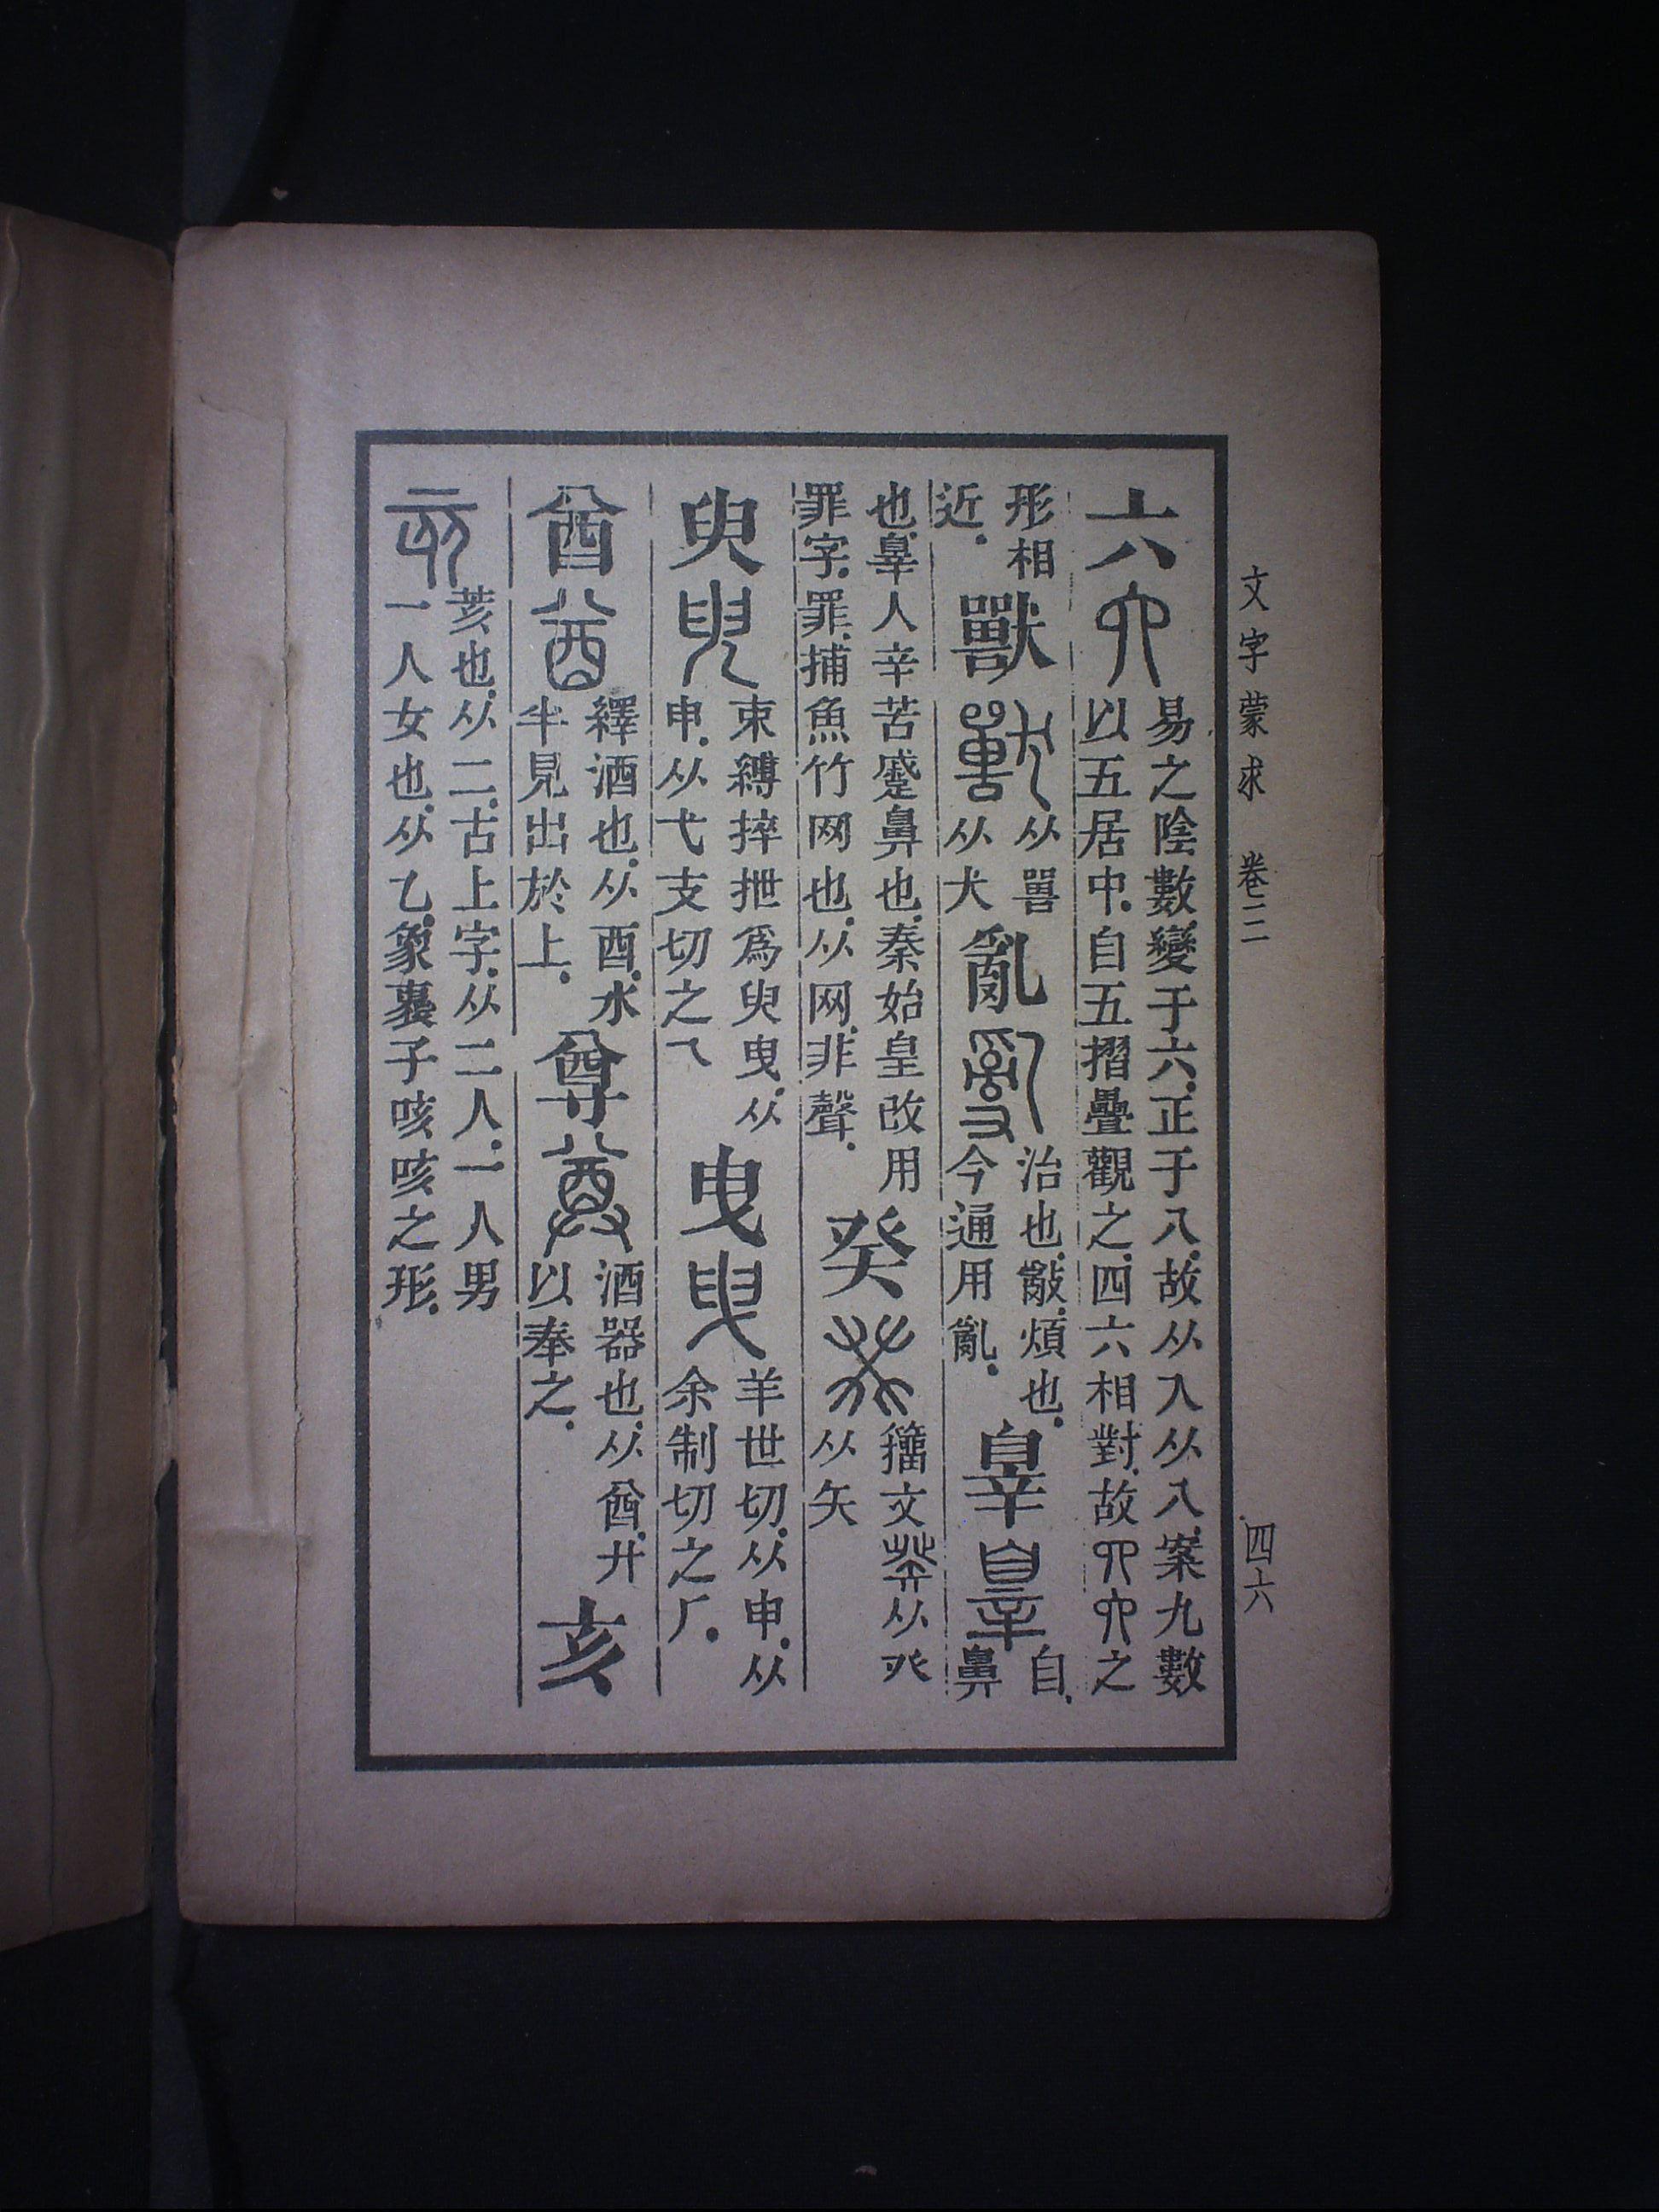 文字蒙求 卷三
四六
六 易之陰數變于六.正于八.故从入从八.案九數
以五居中.自五摺疊觀之.四六相對.故之
形相
近.
獸 从嘼
从犬
亂 治也.敽.煩也.
今通用亂.
辠 自.
鼻
也.辠人辛苦蹙鼻也.秦始皇改用
罪字.罪.捕魚竹网也.从网.非聲.
癸 籀文从癶
从矢
臾 束縛捽抴爲臾曳.从
申.从乀支切之乁
曳 羊世切.从申.从
余制切之厂.
酋 繹酒也.从酉.水
半見出於上.
尊 酒器也.从酋.廾
以奉之.
亥
荄也.从二.古上字.从二人.一人男
一人女也.从乙.象裹子咳咳之形.